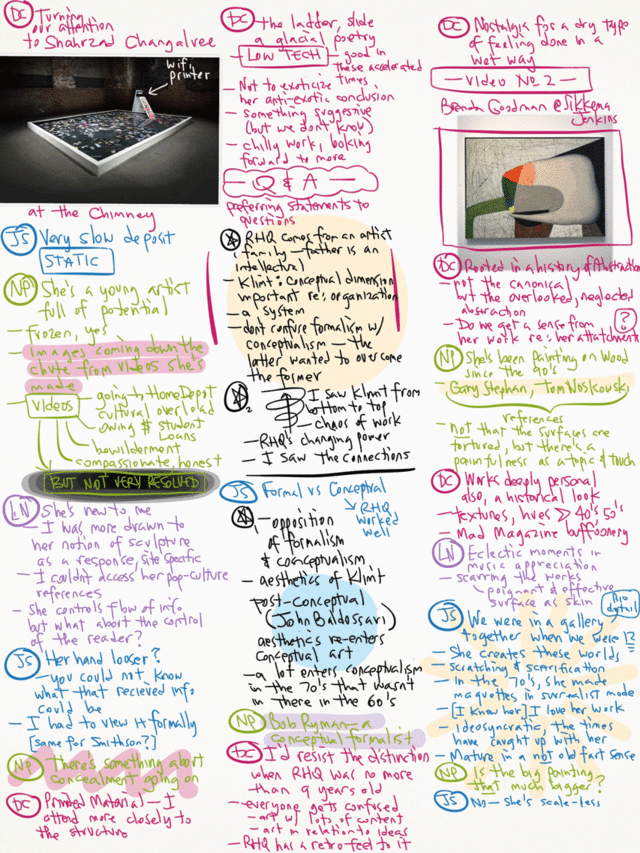 DC Turning
our attention
to Shahrzad Changalvaee
wifi
printer
at the Chimney
JS Very slow deposit
STATIC
NP She's a young artist
full of potential
- frozen, yes
- Images coming down the
chute from videos she's
made
VIDEOS
- going to HomeDepot
cultural overload
owing $ student
Loans
bewilderment
compassionate, honest
BUT NOT VERY RESOLVED
LN She's new to me
- I was more drawn to
her notion of sculpture
as a response, site specific
- I couldn't access her pop-culture
references
- She controls flow of info
but what about the control
of the reader?
JS Her hand looser?
- you could not know
what that recieved info
could be
- I had to view it formally
[same for Smithson?]
NP There's something about
concealment going on
DC Printed Material - I
attend more closely to
the structure
DC The ladder, slide
a glacial poetry
LOW TECH - good in
these accelerated
times
- Not to exoticize
her anti-exotic conclusion
- something suggestive
(but we don't know)
- chilly work, looking
forward to more
- Q & A -
preferring statements to
questions
RHQ comes for an artist
family - father is an
intellectual
- Klimt: conceptual dimension
important re: organization
- a system
- don't confuse formalism w/
conceptualism - the
latter wanted to overcome
the former
2 - I saw Klimt from
bottom to top
- chaos of work
- RHQ's changing power
- I saw the connections
JS Formal vs Conceptual
RHQ
worked
well
1 - opposition
of formalism
& conceptualism
- aesthetics of Klimt
post-Conceptual
(John Baldessari)
aesthetics re-enters
conceptual art
- a lot enters conceptualism
in the 70's that wasn't
in there in the 60's
NP Bob Ryman - a
conceptual formalist
DC I'd resist the distinction
when RHQ was no more
than 9 years old
- everyone gets confused
- art w/ lots of content
- art in relation to ideas
- RHQ has a retro feel to it
DC Nostalgia for a dry type
of feeling done in a
wet way
- VIDEO No 2 -
Brenda Goodman @ Sikkema
Jenkins
DC Rooted in a history of Abstraction
- not the canonical
but the overlooked, neglected
abstraction
- Do we get a sense from
her work re: her attachment
?
NP She's been painting on wood
since the 90's
- Gary Stephan, Tom Noskowski
references
- not that the surfaces are
tortured, but there's a
painfulness as a topic & touch
DC Works deeply personal
also, a historical look
- textures, hues >> 40's 50's
- Mad Magazine buffoonery
LN Eclectic moments in
music appreciation
- scarring the works
poignant & effective
surface as skin
Bio
detail
JS We were in a gallery
together when we were 12
- She creates these worlds
- Scratching & scarification
- In the 70's, she made
maquettes in surrealist mode
- [I know her] I love her work
- ideosyncratic, the times
have caught up with her
- Mature in a not old fart sense
NP Is the big painting
that much bigger?
JS No - she's scale-less